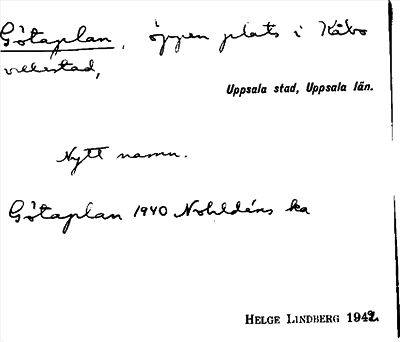 Götaplan, öppen plats i Kåbo
villastad,
Uppsala stad, Uppsala län.
Nytt namn.
Götaplan 1940 Nohldéns ka
HELGE LINDBERG 1942.